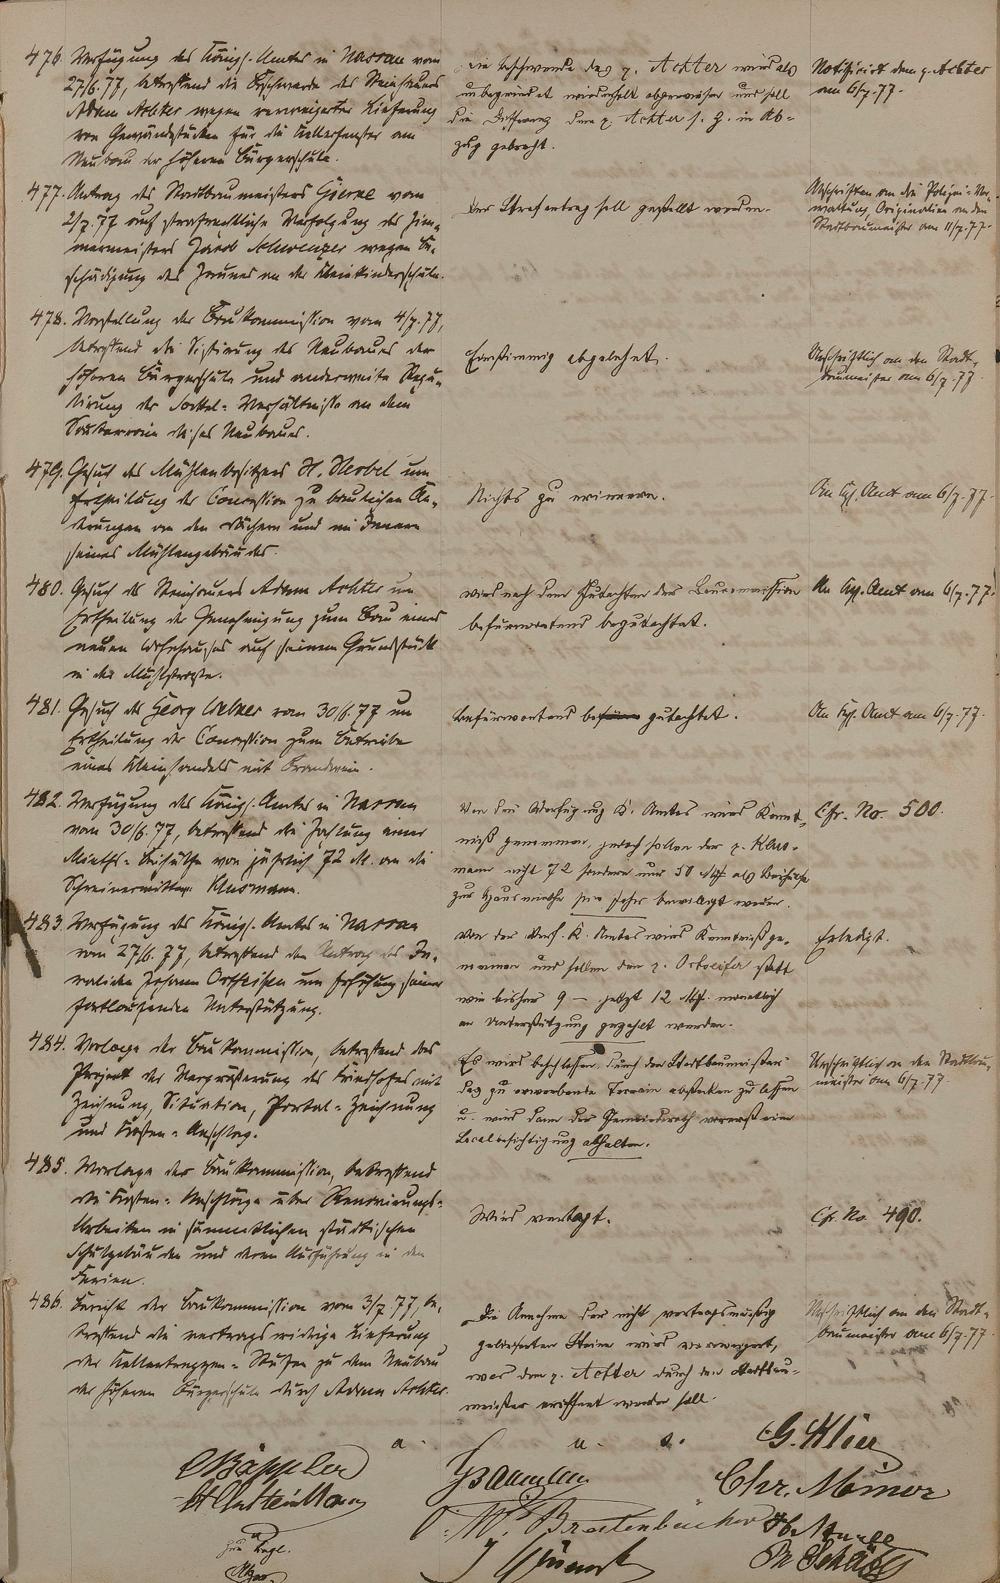 476. Verfügung des Königl. Amtes in Nassau vom
27/6.77, betreffend die Beschwerde des Steinhauers
Adam Achter wegen verweigerter Lieferung
von Gewändestücken für die Kellerfenster am
Neubau der höheren Bürgerschule.
Die Beschwerde des p. Achter wird als
unbegründet wiederholt abgewiesen und soll
die Differenz dem p. Achter s. Z. in Ab-
zug gebracht.
Notificirt dem p. Achter
am 6/7.77.
477. Antrag des Stadtbaumeisters Gierke vom
2/7.77 auf strafrechtliche Verfolgung des Zim-
mermeisters Jacob Schwenzer wegen Be-
schädigung des Zaunes an der Kleinkinderschule.
Der Strafantrag soll gestellt werden.
Abschriften an die Polizei-Ver-
waltung, Originalien an den
Stadtbaumeister am 11/7.77.
478. Vorstellung der Baukommission vom 4/7.77,
betreffend die Sistirung des Neubaues der
höheren Bürgerschule und anderweite Regu-
lirung der Sockel-Verhältnisse an dem
Souterrain dieses Neubaues.
Einstimmig abgelehnt.
Urschriftlich an den Stadt-
baumeister am 6/7.77.
479. Gesuch des Mühlenbesitzers H. Herbel um
Ertheilung der Concession zu baulichen Än-
derungen an den Dächern und im Innern
seines Mühlengebäudes.
Nichts zu erinnern.
An Kgl. Amt am 6/7.77.
480. Gesuch des Steinhauers Adam Achter um
Ertheilung der Genehmigung zum Bau eines
neuen Wohnhauses auf seinem Grundstück
in der Mühlstraße.
wird nach dem Gutachten der Baucommission
befürwortend begutachtet.
An Kgl. Amt am 6/7.77.
481. Gesuch des Georg Webner vom 30/6.77 um
Ertheilung der Concession zum Betriebe
eines Kleinhandels mit Branntwein.
Befürwortend begutachtet.
An Kgl. Amt am 6/7.77.
482. Verfügung des Königl. Amtes in Nassau
vom 30/6.77, betreffend die Zahlung einer
Mieths-Beihülfe von jährlich 72 M. an die
Schreinerwittwe Klusmann.
Von der Verfügung K. Amtes wird Kennt-
niß genommen, jedoch sollen der p. Klus-
mann nicht 72 sondern nur 50 Mk als Beihülfe
zur Hausmiethe pro Jahr bewilligt werden.
Cfr. No. 500.
483. Verfügung des Königl. Amtes in Nassau
vom 27/6.77, betreffend den Antrag des In-
validen Johann Ortseifen um Erhöhung seiner
fortlaufenden Unterstützung.
Von der Verf. K. Amtes wird Kenntniß ge-
nommen und sollen dem p. Ortseifer statt
wie bisher 9 – jetzt 12 Mk. monatlich
an Unterstützung gezahlt werden.
Erledigt.
484. Vorlage der Baukommission, betreffend das
Project der Vergrößerung des Friedhofes mit
Zeichnung, Situation, Portal-Zeichnung
und Kosten-Anschlag.
Es wird beschlossen, durch den Stadtbaumeister
das zu erwerbende Terrain abstecken zu lassen
u. wird dann der Gemeinderath vorerst eine
Localbesichtigung abhalten.
Urschriftlich an den Stadtbau-
meister am 6/7.77.
485. Vorlage der Baukommission, betreffend
die Kosten-Anschläge über Renovirungs-
Arbeiten in sämmtlichen städtischen
Schulgebäuden und deren Ausführung in den
Ferien.
Wird vertagt.
Cfr. No. 490.
486. Bericht der Baukommission vom 3/7.77, be-
treffend die vertragswidrige Lieferung
der Kellertreppen-Stufen zu dem Neubau
der höheren Bürgerschule durch Adam Achter.
Die Annahme der nicht vertragsmäßig
gelieferten Steine wird verweigert,
was dem p. Achter durch den Stadtbau-
meister eröffnet werden soll.
Urschriftlich an den Stadt-
baumeister am 6/7.77.
a. u. s.
G. Klier
Chr. Minor
Breitenbücher